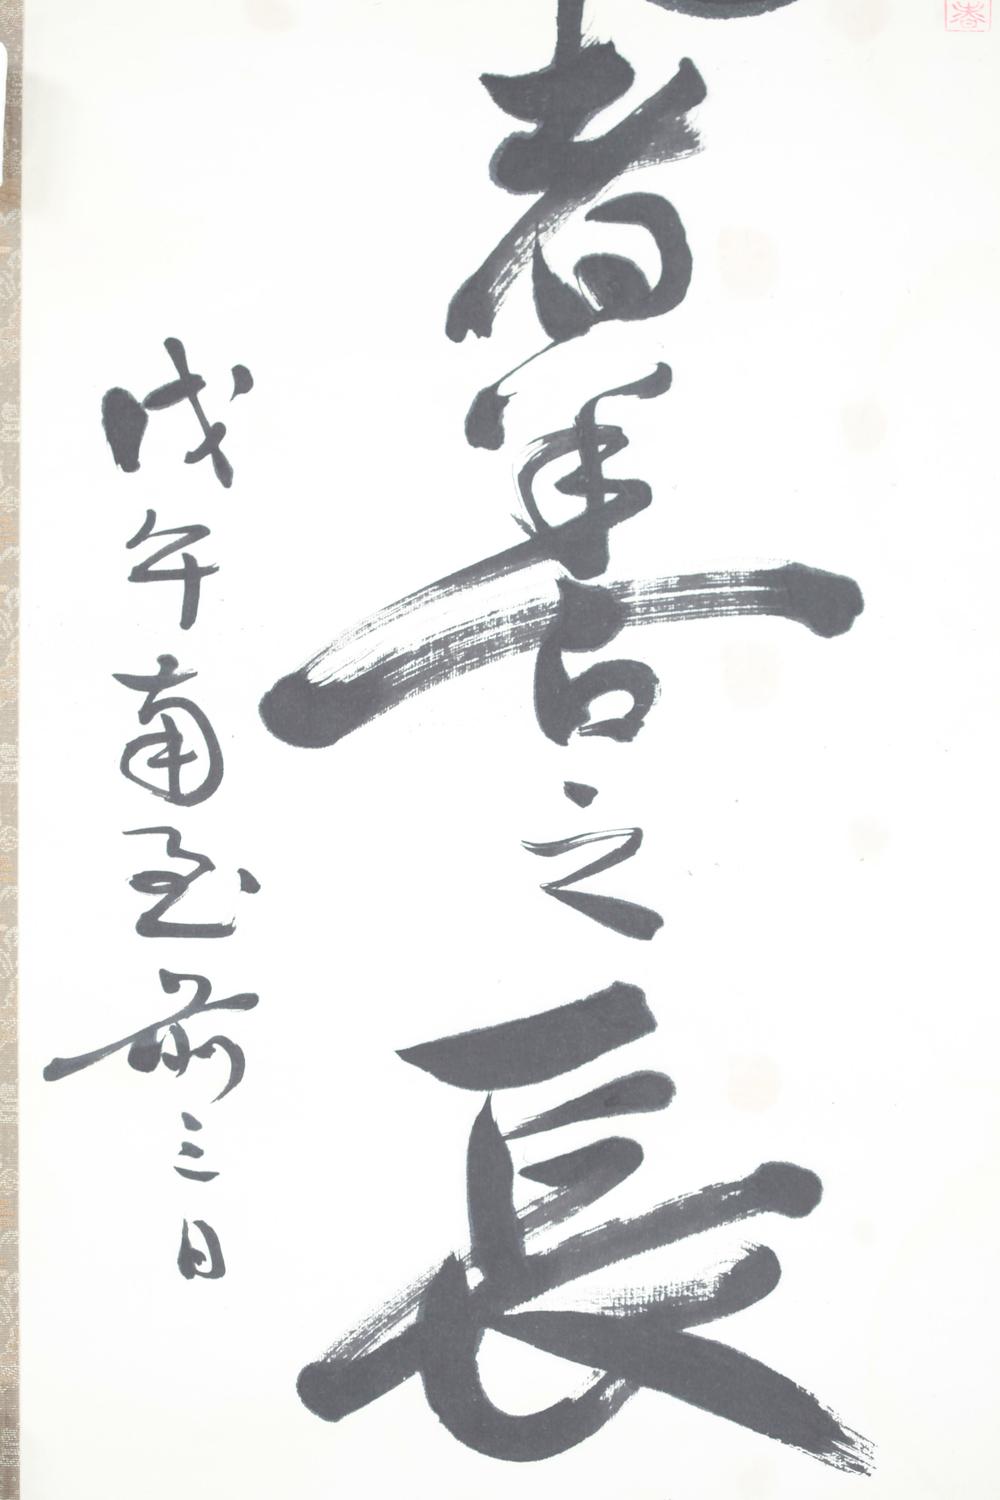 者善之長
戊午南至前三日